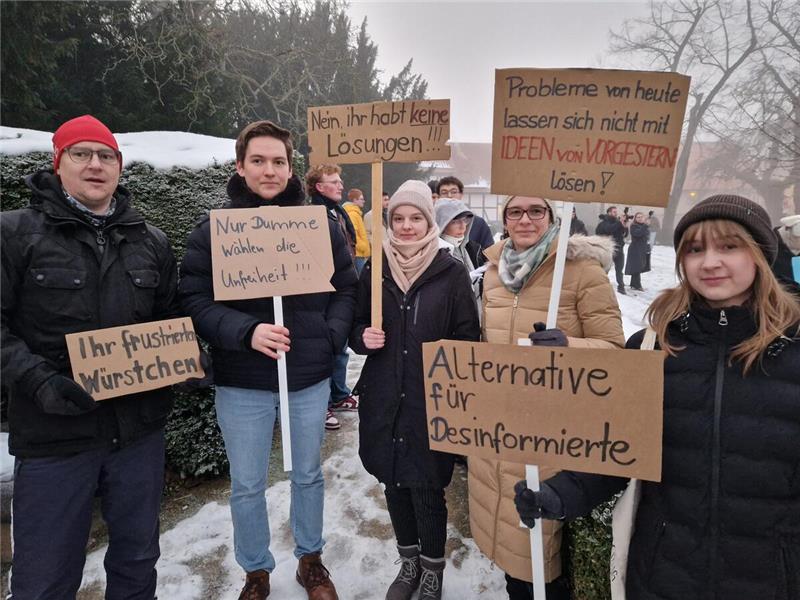 Ihr frustrierten
Würstchen
Nur Dumme
wählen die
Unfreiheit!!!
Nein, ihr habt keine
Lösungen!!!
Probleme von heute
lassen sich nicht mit
IDEEN von VORGESTERN
lösen!
Alternative
für
Desinformierte